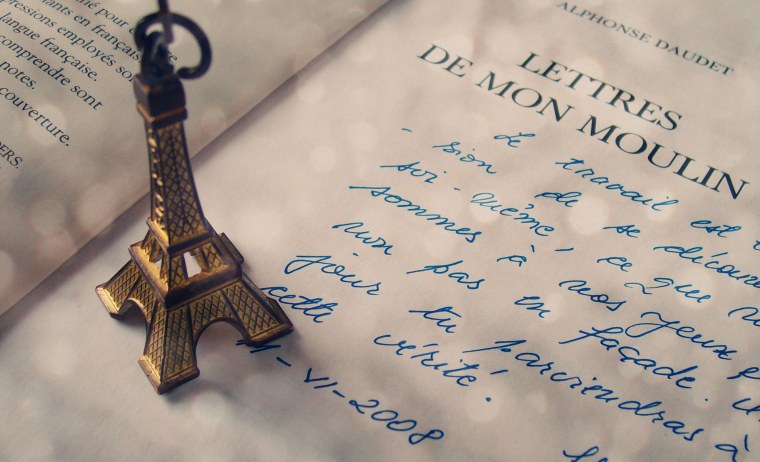 pour
ants en français
ressions employés so
langue française.
comprendre sont
notes.
couverture.
DERS.
ALPHONSE DAUDET
LETTRES
DE MON MOULIN
Le travail est
- sion de se découv
soi-même, ce que
sommes à nos yeux e
non pas en façade.
jour tu parviendras à
cette vérité.
11-VI-2008